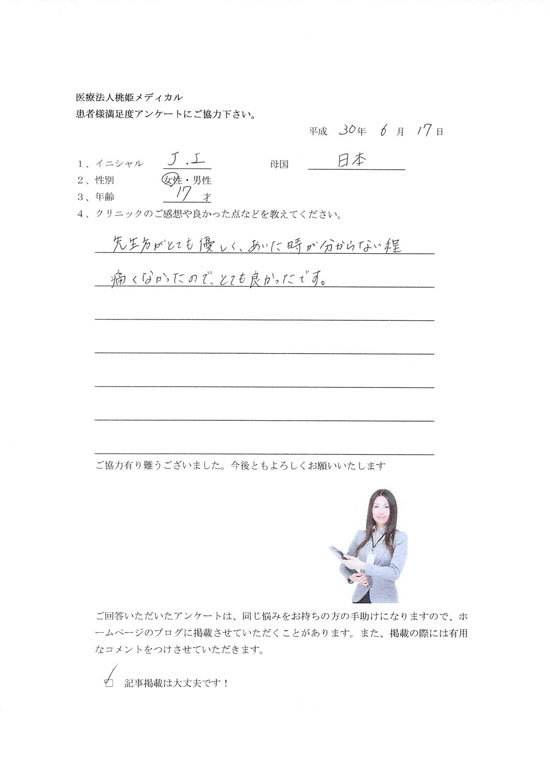 医療法人桃姫メディカル
患者様満足度アンケートにご協力下さい。
平成 30年 6 月 17日
1、イニシャル J.I 母国 日本
2、性別 女性・男性
3、年齢 17 才
4、クリニックのご感想や良かった点などを教えてください。
先生方がとても優しく、あいた時が分からない程
痛くなかったので、とても良かったです。
ご協力有り難うございました。今後ともよろしくお願いいたします
ご回答いただいたアンケートは、同じ悩みをお持ちの方の手助けになりますので、ホ
ームページのブログに掲載させていただくことがあります。また、掲載の際には有用
なコメントをつけさせていただきます。
☑ 記事掲載は大丈夫です！